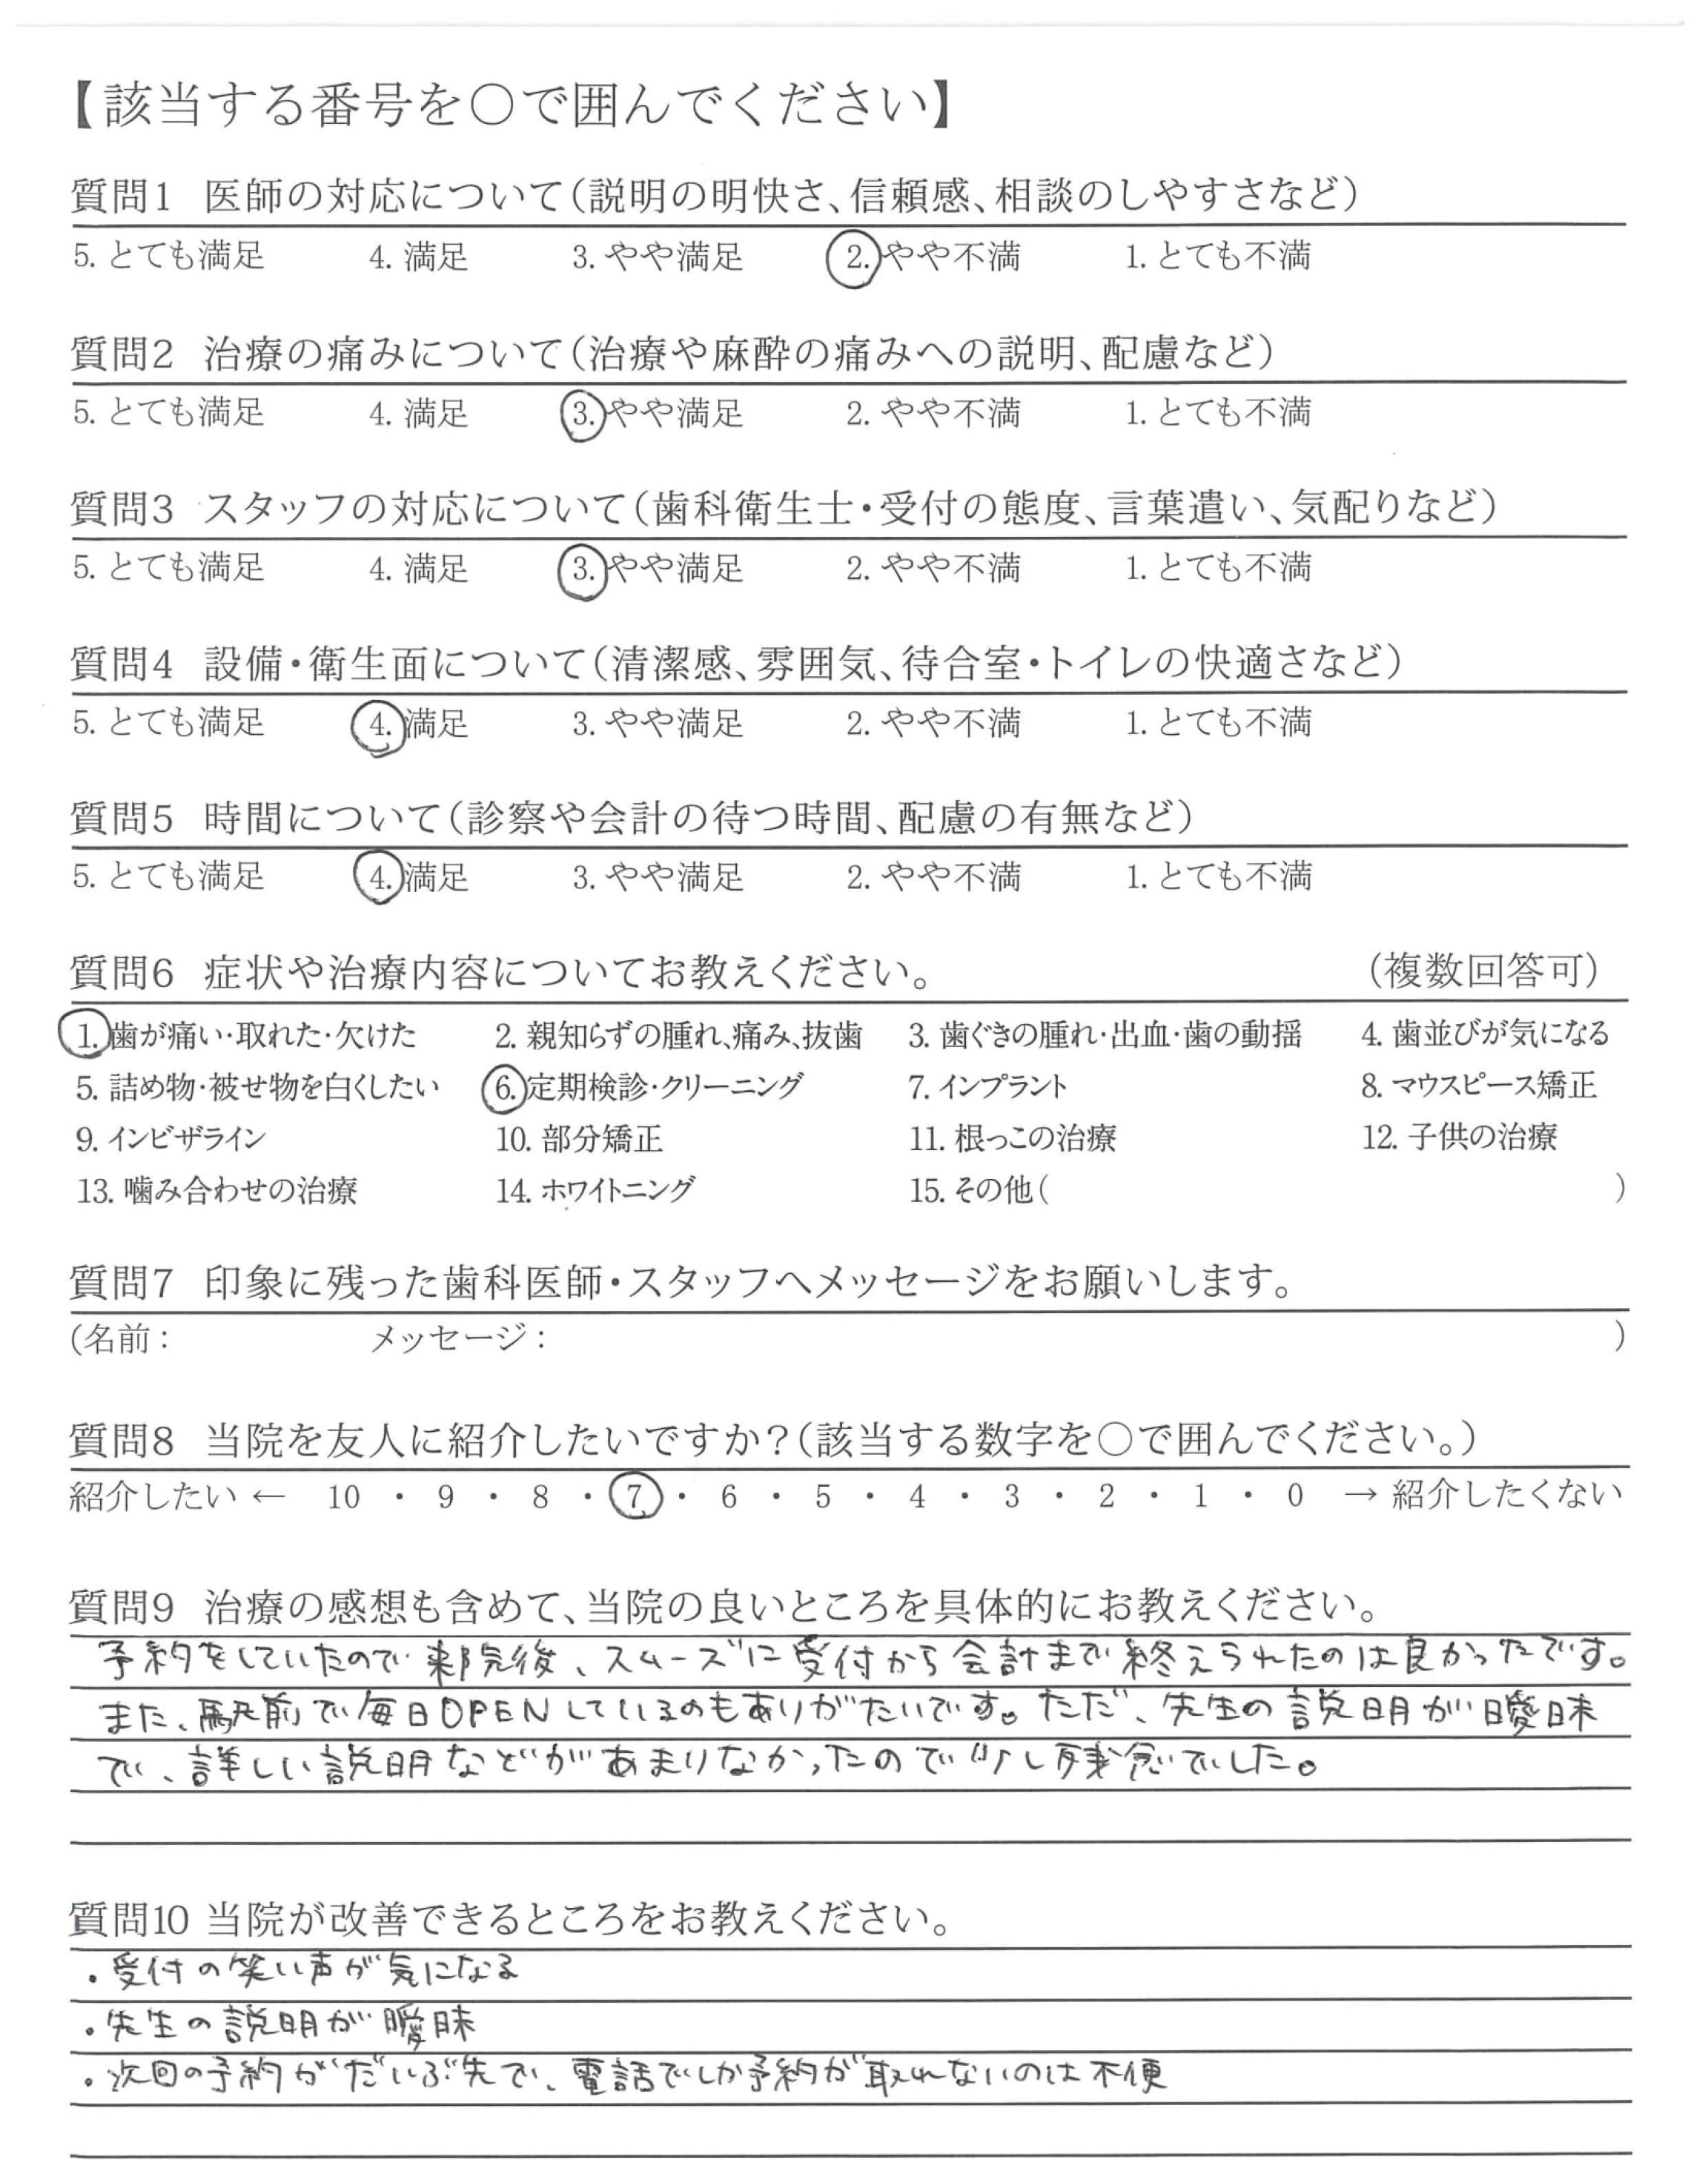 【該当する番号を○で囲んでください】
質問1 医師の対応について(説明の明快さ、信頼感、相談のしやすさなど)
5. とても満足 4. 満足 3. やや満足 2. やや不満 1. とても不満
質問2 治療の痛みについて(治療や麻酔の痛みへの説明、配慮など)
5. とても満足 4. 満足 3. やや満足 2. やや不満 1. とても不満
質問3 スタッフの対応について(歯科衛生士・受付の態度、言葉遣い、気配りなど)
5. とても満足 4. 満足 3. やや満足 2. やや不満 1. とても不満
質問4 設備・衛生面について(清潔感、雰囲気、待合室・トイレの快適さなど)
5. とても満足 4. 満足 3. やや満足 2. やや不満 1. とても不満
質問5 時間について(診察や会計の待つ時間、配慮の有無など)
5. とても満足 4. 満足 3. やや満足 2. やや不満 1. とても不満
質問6 症状や治療内容についてお教えください。 (複数回答可)
1. 歯が痛い・取れた・欠けた 2. 親知らずの腫れ、痛み、抜歯 3. 歯ぐきの腫れ・出血・歯の動揺 4. 歯並びが気になる
5. 詰め物・被せ物を白くしたい 6. 定期検診・クリーニング 7. インプラント 8. マウスピース矯正
9. インビザライン 10. 部分矯正 11. 根っこの治療 12. 子供の治療
13. 噛み合わせの治療 14. ホワイトニング 15. その他( )
質問7 印象に残った歯科医師・スタッフへメッセージをお願いします。
(名前: メッセージ: )
質問8 当院を友人に紹介したいですか?(該当する数字を○で囲んでください。)
紹介したい ← 10 ・ 9 ・ 8 ・ 7 ・ 6 ・ 5 ・ 4 ・ 3 ・ 2 ・ 1 ・ 0 → 紹介したくない
質問9 治療の感想も含めて、当院の良いところを具体的にお教えください。
予約をしていたので来院後、スムーズに受付から会計まで終えられたのは良かったです。
また、駅前で毎日OPENしているのもありがたいです。ただ、先生の説明が曖昧
で、詳しい説明などがあまりなかったので少し残念でした。
質問10 当院が改善できるところをお教えください。
・受付の笑い声が気になる
・先生の説明が曖昧
・次回の予約がだいぶ先で、電話でしか予約が取れないのは不便